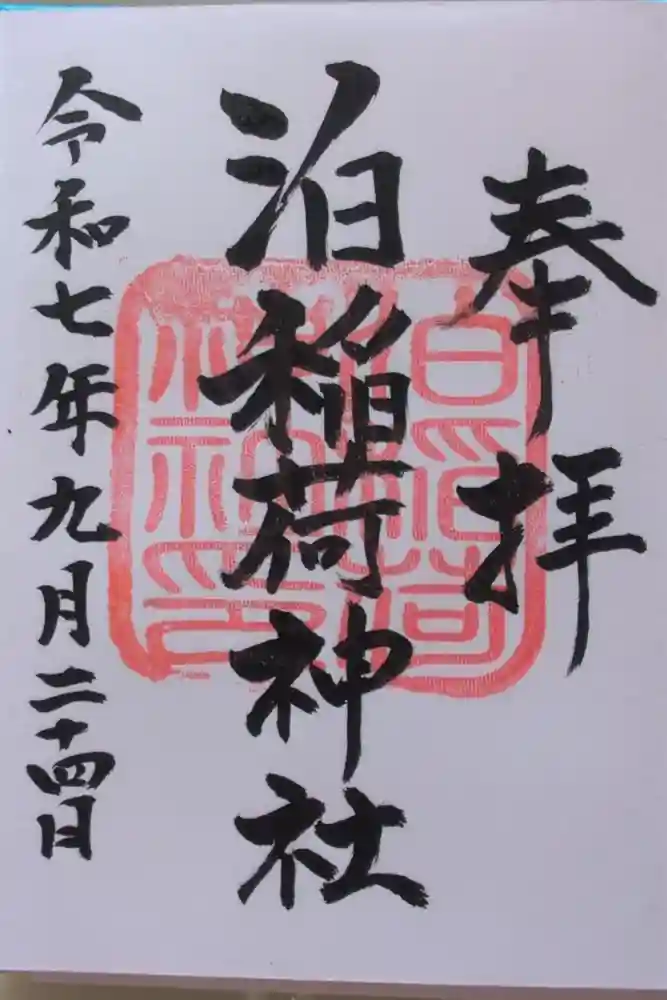 奉拝
泊稲荷神社
令和七年九月二十四日